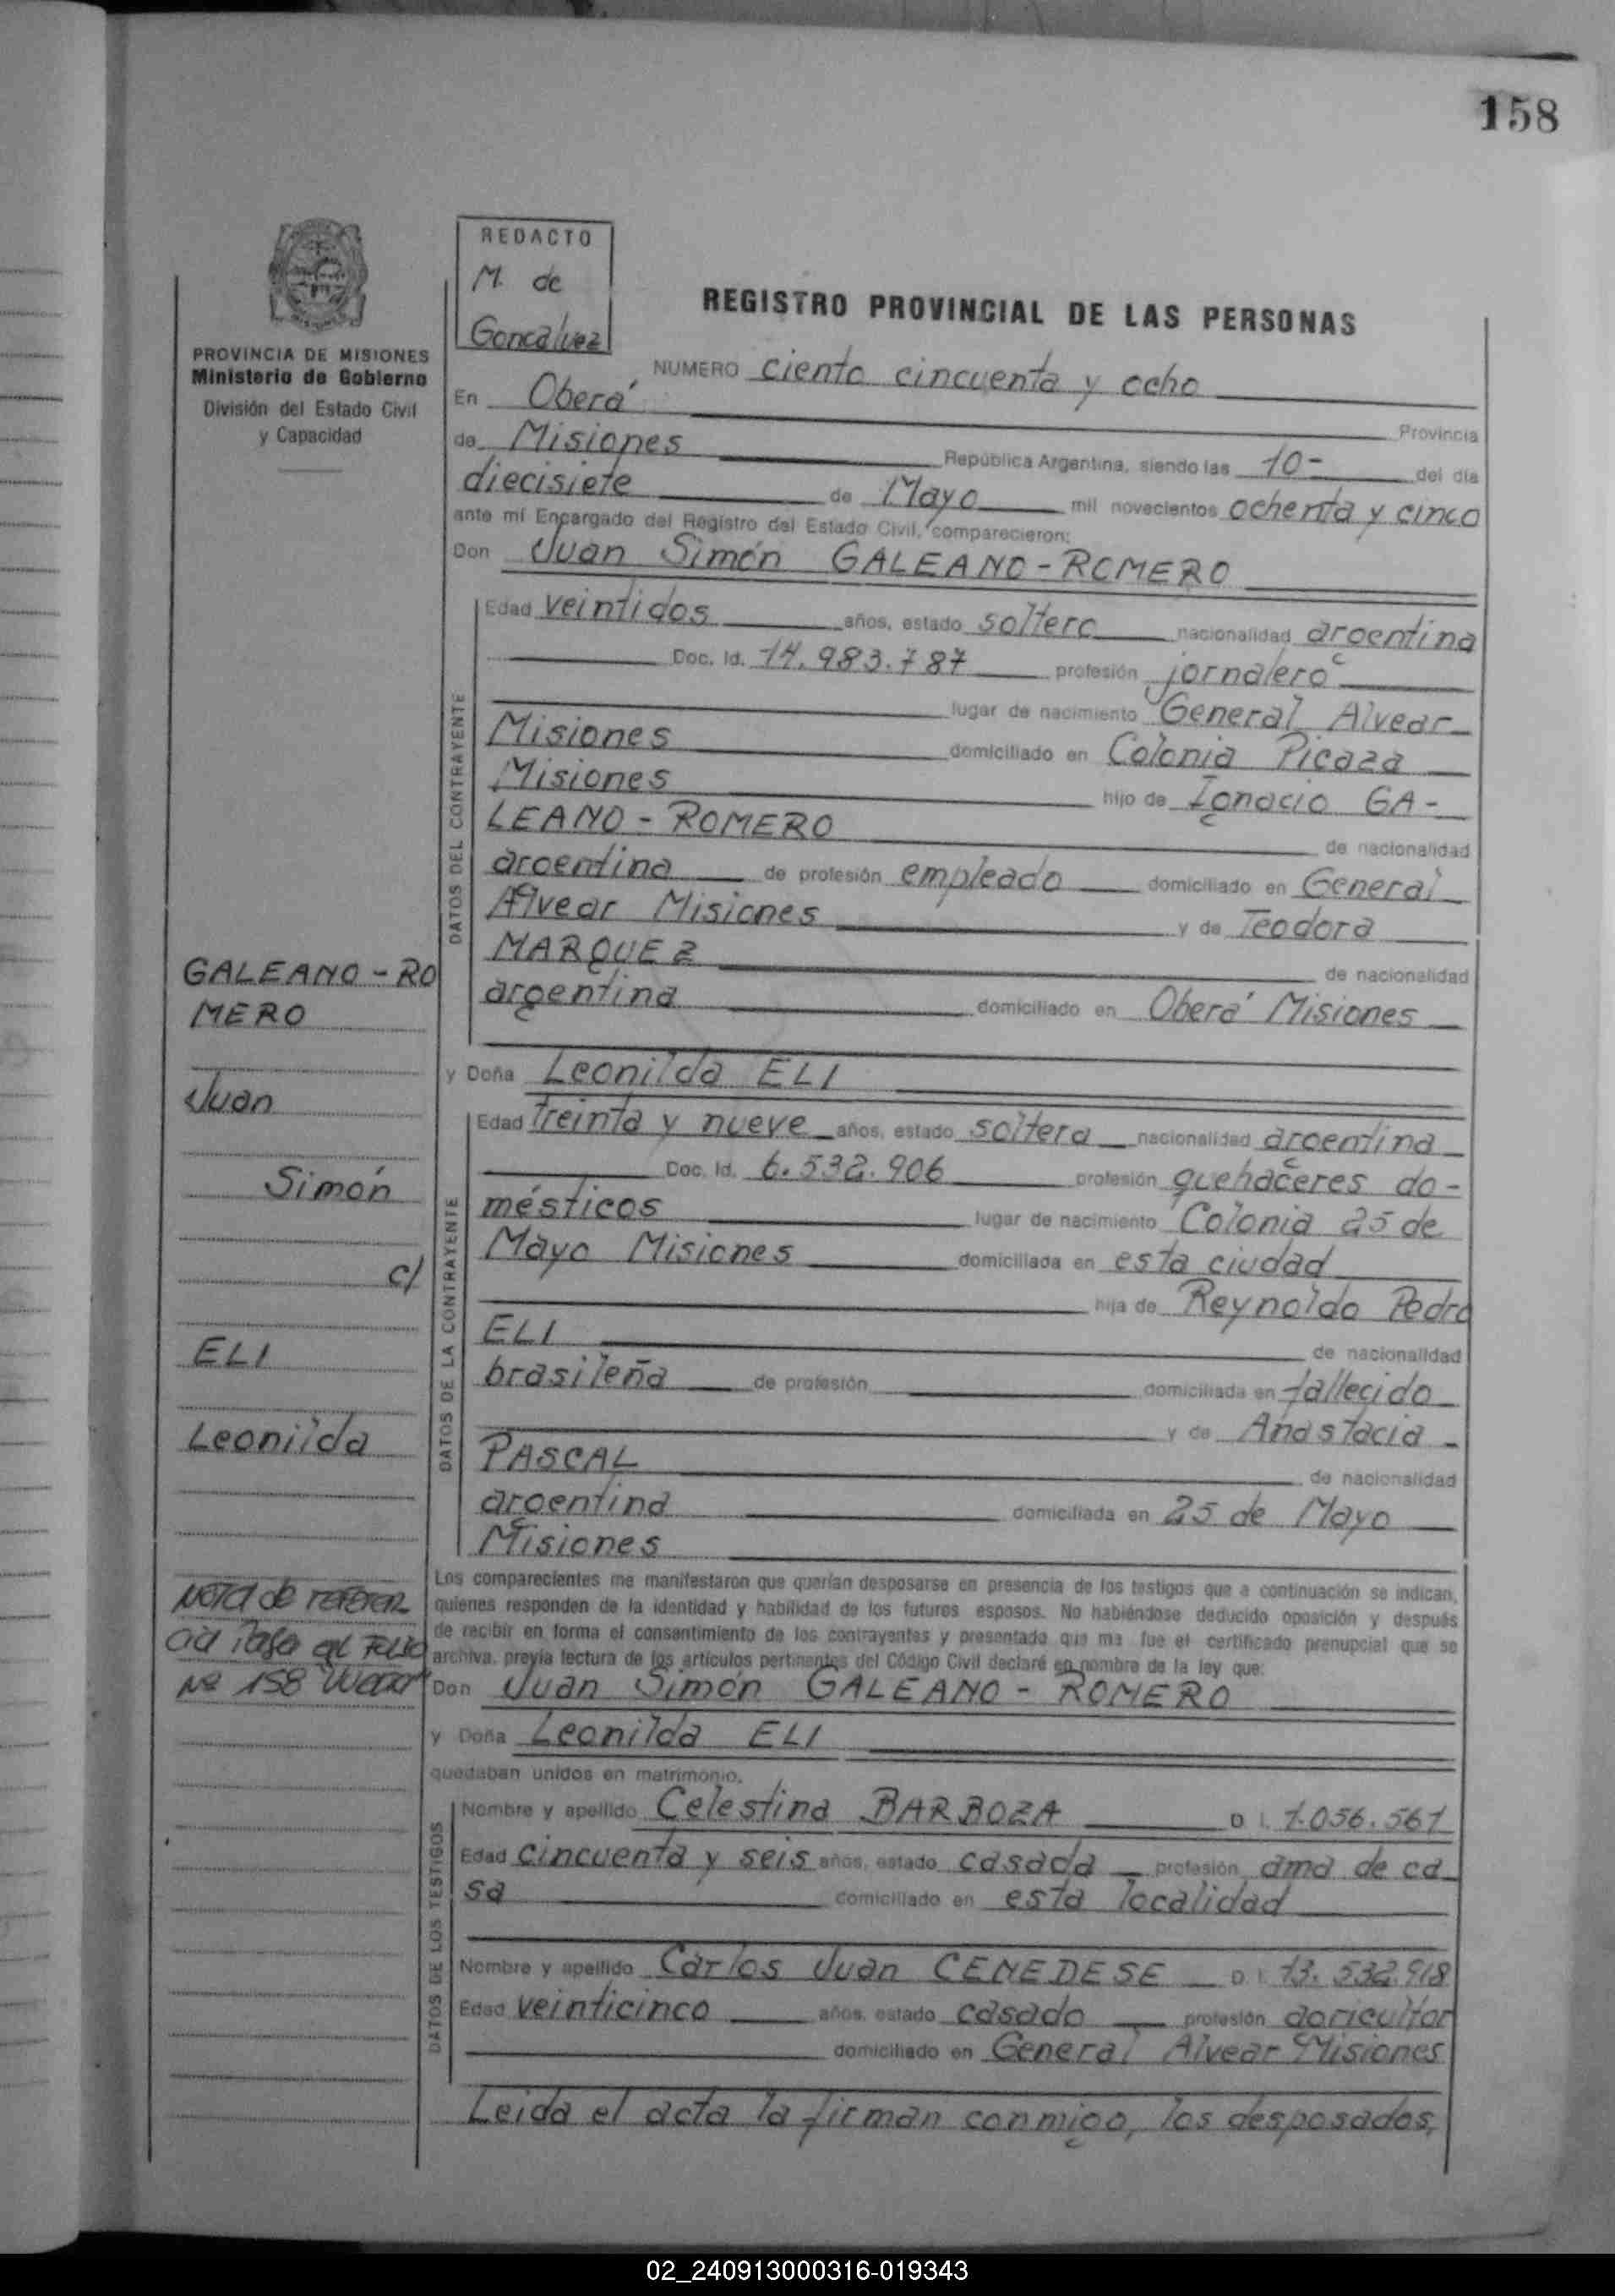 158
REDACTO
M. de
Goncalvez
PROVINCIA DE MISIONES
Ministerio de Gobierno
División del Estado Civil
y Capacidad
REGISTRO PROVINCIAL DE LAS PERSONAS
NUMERO ciento cincuenta y ocho
En Oberá Provincia
de Misiones República Argentina, siendo las 10- del día
diecisiete de Mayo mil novecientos ochenta y cinco
ante mí Encargado del Registro del Estado Civil, comparecieron:
Don Juan Simón GALEANO-ROMERO
DATOS DEL CONTRAYENTE
Edad veintidos años, estado soltero nacionalidad argentina
Doc. Id. 14.983.787 profesión jornalero
lugar de nacimiento General Alvear
Misiones domiciliado en Colonia Picaza
Misiones hijo de Ignacio GA-
LEANO-ROMERO de nacionalidad
argentina de profesión empleado domiciliado en General
Alvear Misiones y de Teodora
MARQUEZ de nacionalidad
argentina domiciliado en Oberá Misiones
y Doña Leonilda ELI
DATOS DE LA CONTRAYENTE
Edad treinta y nueve años, estado soltera nacionalidad argentina
Doc. Id. 6.532.906 profesión quehaceres do-
mésticos lugar de nacimiento Colonia 25 de
Mayo Misiones domiciliada en esta ciudad
hija de Reynoldo Pedro
ELI de nacionalidad
brasileña de profesión domiciliada en fallecido
y de Anastacia -
PASCAL de nacionalidad
argentina domiciliada en 25 de Mayo
Misiones
GALEANO-RO
MERO
Juan
Simón
c/
ELI
Leonilda
Nota de referen
cia Pasa al Folio
Nº 158
Los comparecientes me manifestaron que querían desposarse en presencia de los testigos que a continuación se indican,
quienes responden de la identidad y habilidad de los futuros esposos. No habiéndose deducido oposición y después
de recibir en forma el consentimiento de los contrayentes y presentado que me fue el certificado prenupcial que se
archiva, previa lectura de los artículos pertinentes del Código Civil declaré en nombre de la ley que:
Don Juan Simón GALEANO-ROMERO
y Doña Leonilda ELI
quedaban unidos en matrimonio.
DATOS DE LOS TESTIGOS
Nombre y apellido Celestina BARBOZA D. I. 1.056.561
Edad cincuenta y seis años, estado casada profesión ama de ca
sa domiciliado en esta localidad
Nombre y apellido Carlos Juan CENEDESE D. I. 13.532.918
Edad veinticinco años, estado casado profesión agricultor
domiciliado en General Alvear Misiones
Leida el acta la firman conmigo, los desposados,
02_240913000316-019343